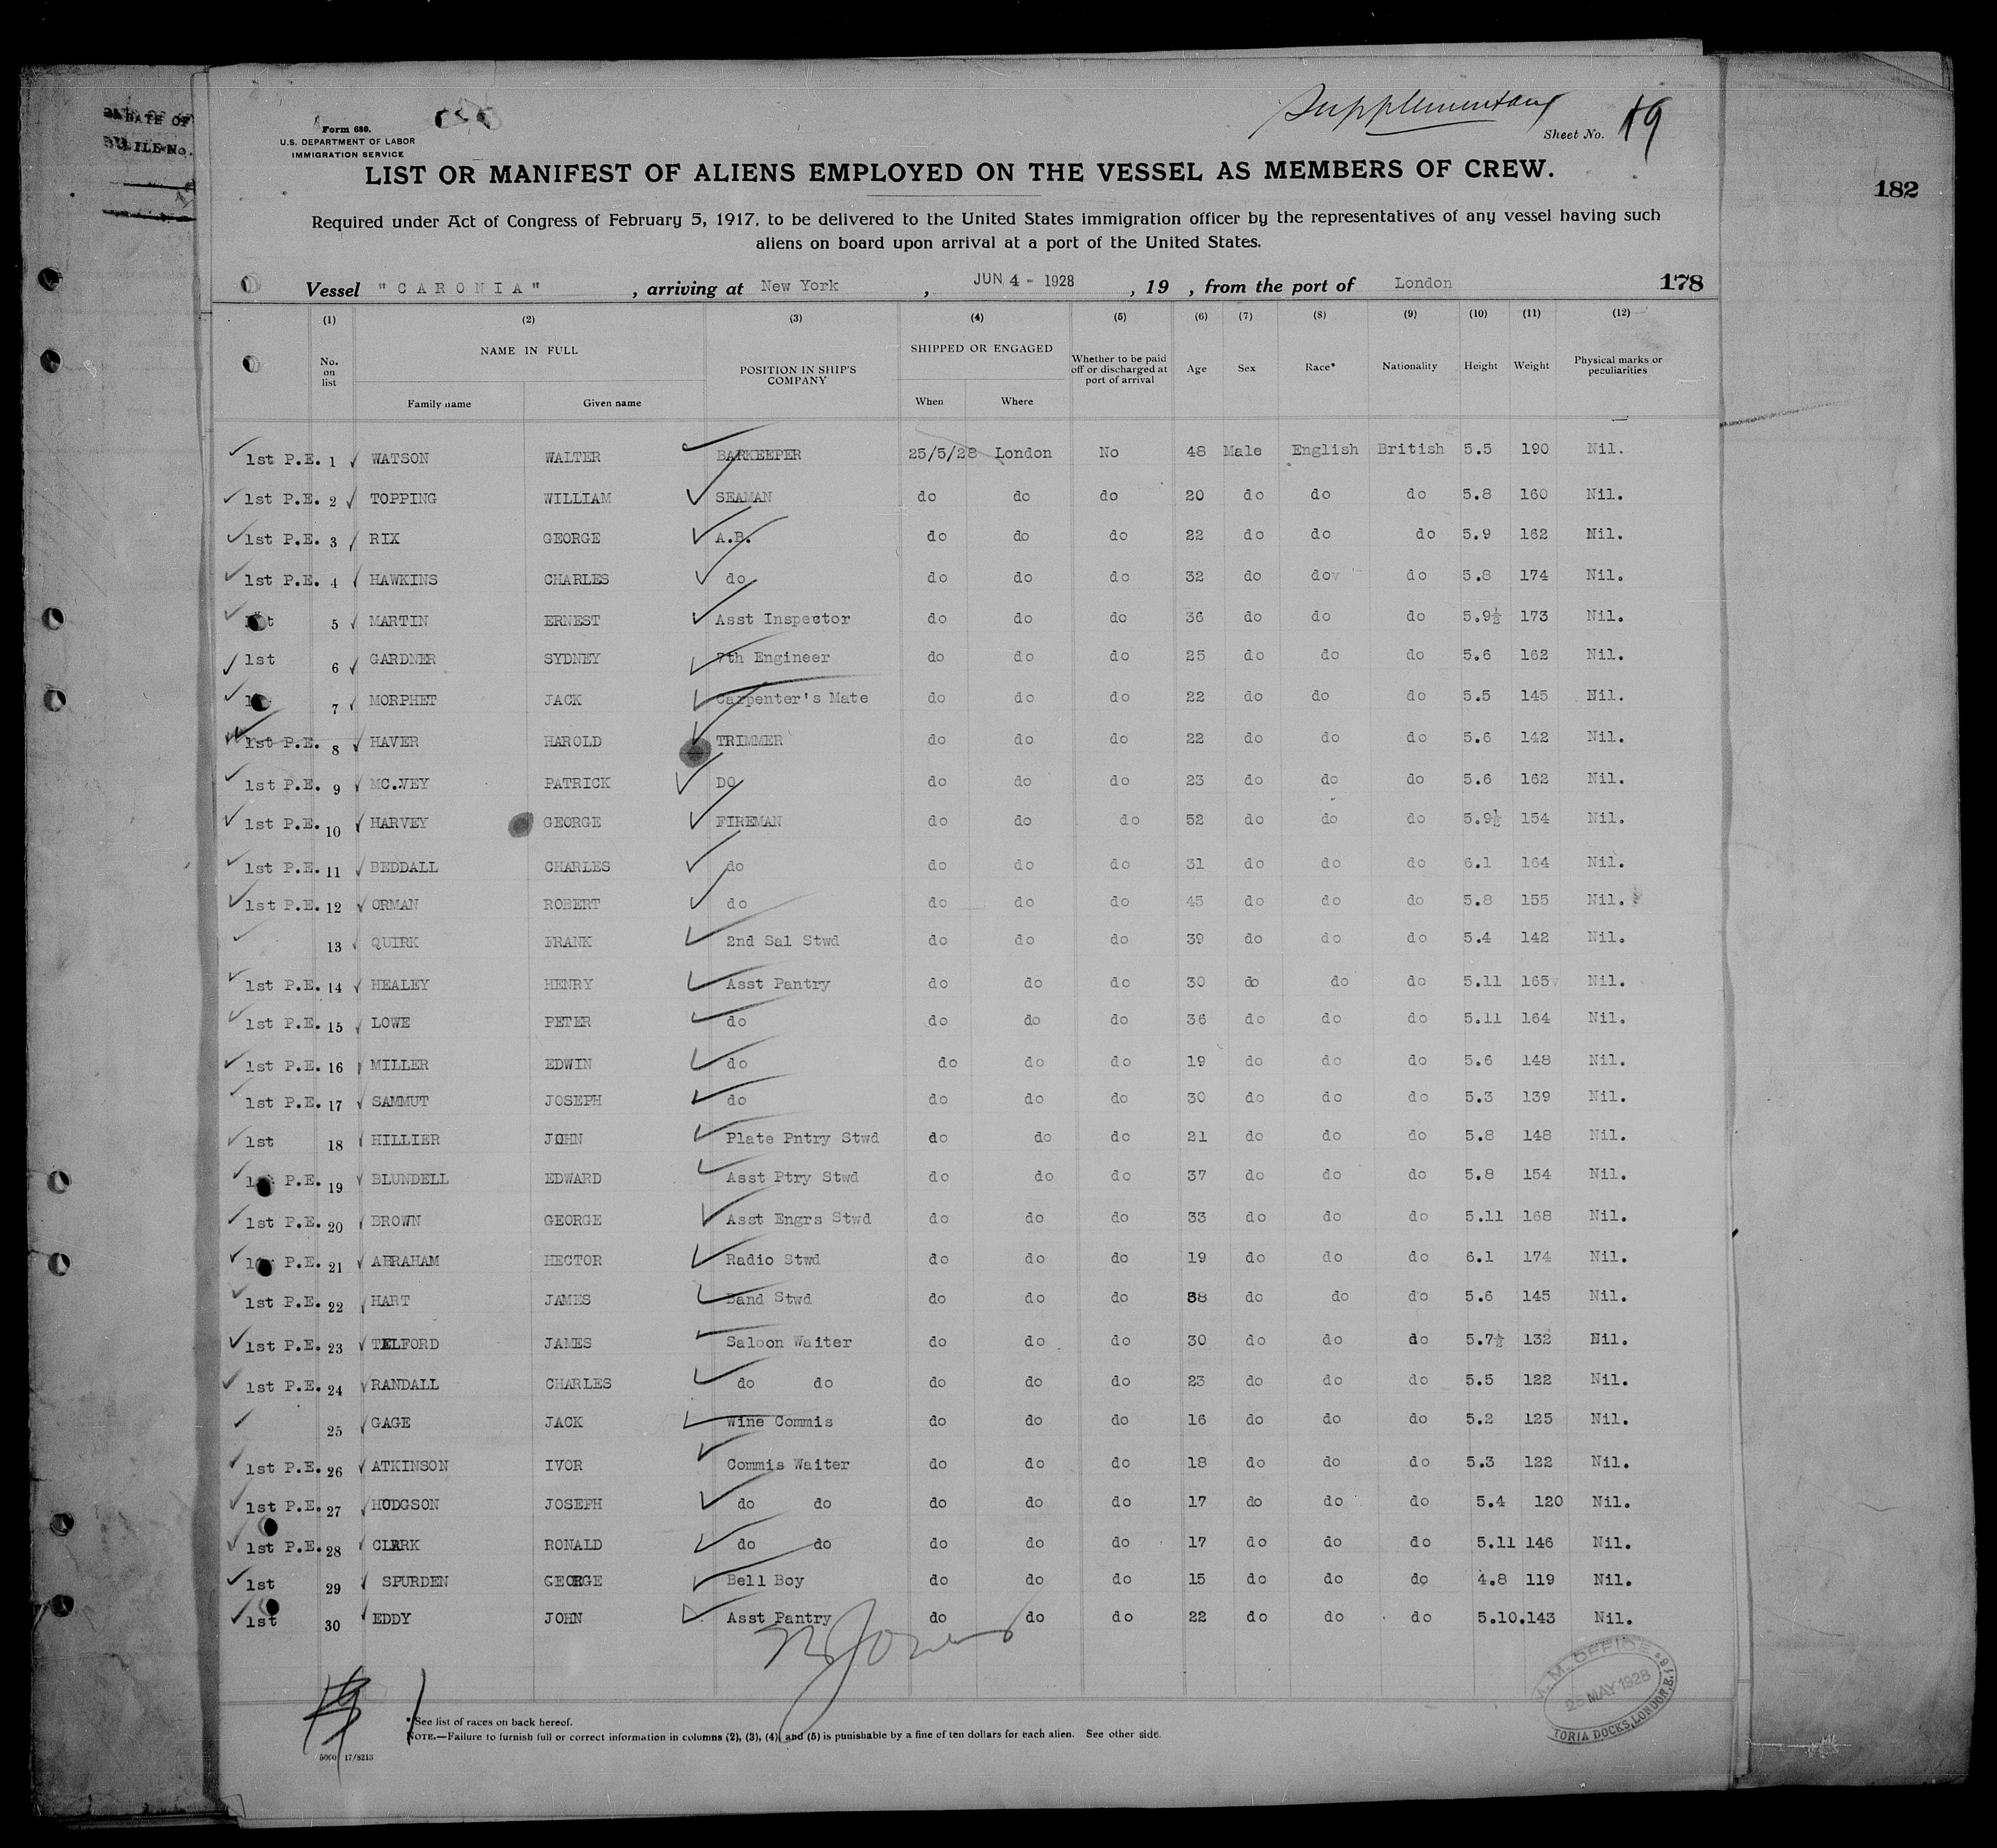 DATE OF
FILE No.
Supplementary
Form 680.
U.S. DEPARTMENT OF LABOR
IMMIGRATION SERVICE
Sheet No. 19
LIST OR MANIFEST OF ALIENS EMPLOYED ON THE VESSEL AS MEMBERS OF CREW.
182
Required under Act of Congress of February 5, 1917, to be delivered to the United States immigration officer by the representatives of any vessel having such
aliens on board upon arrival at a port of the United States.
Vessel "CARONIA", arriving at New York, JUN 4 - 1928, 19 , from the port of London 178
(1) (2) (3) (4) (5) (6) (7) (8) (9) (10) (11) (12)
No. on list NAME IN FULL POSITION IN SHIP'S COMPANY SHIPPED OR ENGAGED Whether to be paid off or discharged at port of arrival Age Sex Race* Nationality Height Weight Physical marks or peculiarities
Family name Given name When Where
1st P.E. 1 WATSON WALTER BARKEEPER 25/5/28 London No 48 Male English British 5.5 190 Nil.
1st P.E. 2 TOPPING WILLIAM SEAMAN do do do 20 do do do 5.8 160 Nil.
1st P.E. 3 RIX GEORGE A.B. do do do 22 do do do 5.9 162 Nil.
1st P.E. 4 HAWKINS CHARLES do do do do 32 do do do 5.8 174 Nil.
5 MARTIN ERNEST Asst Inspector do do do 36 do do do 5.9½ 173 Nil.
1st 6 GARDNER SYDNEY 7th Engineer do do do 25 do do do 5.6 162 Nil.
7 MORPHET JACK Carpenter's Mate do do do 22 do do do 5.5 145 Nil.
1st P.E. 8 HAVER HAROLD TRIMMER do do do 22 do do do 5.6 142 Nil.
1st P.E. 9 MC.VEY PATRICK DO do do do 23 do do do 5.6 162 Nil.
1st P.E. 10 HARVEY GEORGE FIREMAN do do do 52 do do do 5.9½ 154 Nil.
1st P.E. 11 BEDDALL CHARLES do do do do 31 do do do 6.1 164 Nil.
1st P.E. 12 ORMAN ROBERT do do do do 45 do do do 5.8 155 Nil.
13 QUIRK FRANK 2nd Sal Stwd do do do 39 do do do 5.4 142 Nil.
1st P.E. 14 HEALEY HENRY Asst Pantry do do do 30 do do do 5.11 165 Nil.
1st P.E. 15 LOWE PETER do do do do 36 do do do 5.11 164 Nil.
1st P.E. 16 MILLER EDWIN do do do do 19 do do do 5.6 148 Nil.
1st P.E. 17 SAMMUT JOSEPH do do do do 30 do do do 5.3 139 Nil.
1st 18 HILLIER JOHN Plate Pntry Stwd do do do 21 do do do 5.8 148 Nil.
P.E. 19 BLUNDELL EDWARD Asst Ptry Stwd do do do 37 do do do 5.8 154 Nil.
1st P.E. 20 BROWN GEORGE Asst Engrs Stwd do do do 33 do do do 5.11 168 Nil.
P.E. 21 ABRAHAM HECTOR Radio Stwd do do do 19 do do do 6.1 174 Nil.
1st P.E. 22 HART JAMES Band Stwd do do do 38 do do do 5.6 145 Nil.
1st P.E. 23 TELFORD JAMES Saloon Waiter do do do 30 do do do 5.7½ 132 Nil.
1st P.E. 24 RANDALL CHARLES do do do do do 23 do do do 5.5 122 Nil.
25 GAGE JACK Wine Commis do do do 16 do do do 5.2 125 Nil.
1st P.E. 26 ATKINSON IVOR Commis Waiter do do do 18 do do do 5.3 122 Nil.
1st P.E. 27 HODGSON JOSEPH do do do do do 17 do do do 5.4 120 Nil.
1st P.E. 28 CLARK RONALD do do do do do 17 do do do 5.11 146 Nil.
1st 29 SPURDEN GEORGE Bell Boy do do do 15 do do do 4.8 119 Nil.
1st 30 EDDY JOHN Asst Pantry do do do 22 do do do 5.10. 143 Nil.
M. OFFICE
25 MAY 1928
TORIA DOCKS, LONDON, E.
*See list of races on back hereof.
NOTE.—Failure to furnish full or correct information in columns (2), (3), (4), and (5) is punishable by a fine of ten dollars for each alien. See other side.
5000 17/8213